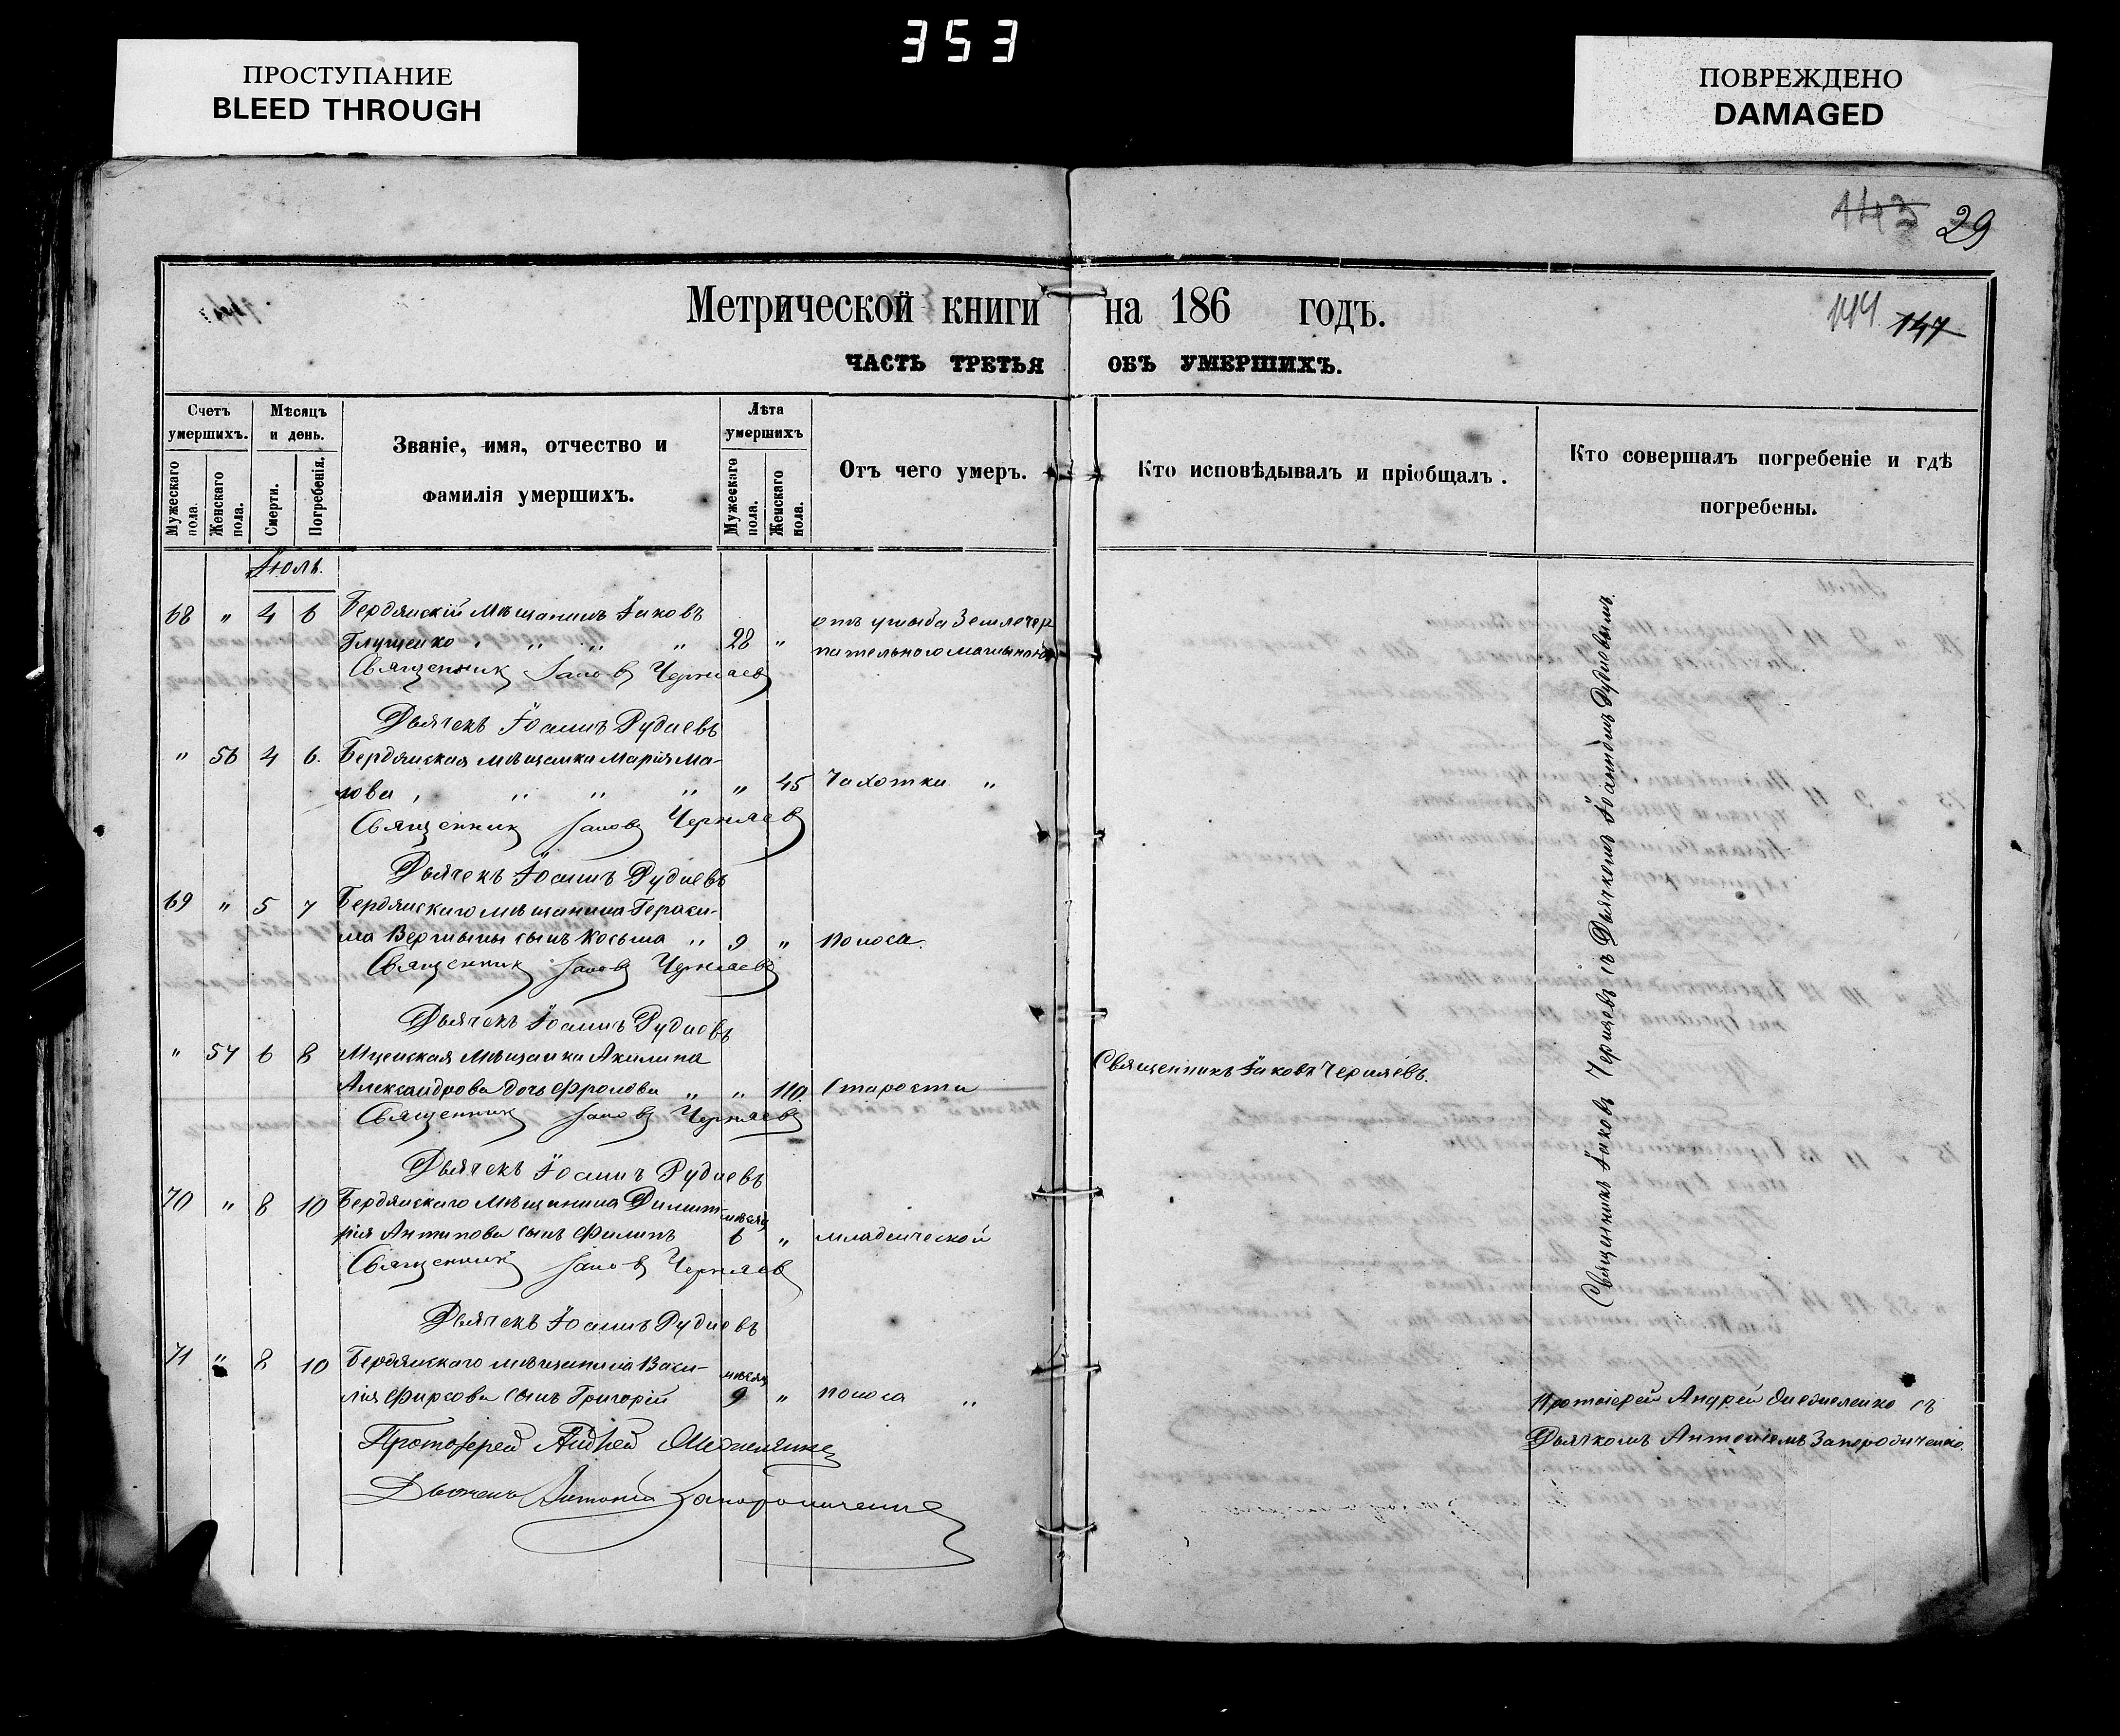 353
ПРОСТУПАНИЕ
BLEED THROUGH
ПОВРЕЖДЕНО
DAMAGED
143 29
144 147
Метрической книги на 186 годъ.
ЧАСТЬ ТРЕТЬЯ ОБЪ УМЕРШИХЪ.
Счетъ умершихъ.
Мужескаго пола.
Женскаго пола.
Мѣсяцъ и день.
Смерти.
Погребенія.
Званіе, имя, отчество и
фамилія умершихъ.
Лѣта умершихъ
Мужескаго пола.
Женскаго пола.
Отъ чего умеръ.
Кто исповѣдывалъ и пріобщалъ.
Кто совершалъ погребеніе и гдѣ
погребены.
Іюль.
68 " 4 6 Бердянскій мѣщанинъ Іаковъ
Глущенко " " " 28 " отъ ушиба Землечер
пательною машиною
Священникъ Іаковъ Черняевъ
Дьячекъ Іоаннъ Рудневъ
" 56 4 6. Бердянская мѣщанка Марія Ма-
лова " " " " 45 Чахотки "
Священникъ Іаковъ Черняевъ
Дьячекъ Іоаннъ Рудневъ
69 " 5 7 Бердянскаго мѣщанина Гераси-
ма сынъ Косьма " 9 " Поноса.
Священникъ Іаковъ Черняевъ
Дьячекъ Іоаннъ Рудневъ
" 57 6 8 Мценская мѣщанка Акилина
Александрова дочь Фролова " " 110. Старости
Священникъ Іаковъ Черняевъ.
Священникъ Іаковъ Черняевъ
Дьячекъ Іоаннъ Рудневъ
70 " 8 10 Бердянскаго мѣщанина Димит-
рія Антипова сынъ Филипъ мѣсяц 6 " младенческой
Священникъ Іаковъ Черняевъ
Дьячекъ Іоаннъ Рудневъ
71 " 8 10 Бердянскаго мѣщанина Васи-
лія Фирсова сынъ Григорій мѣсяц 9 " поноса "
Протоіерей Андрей
Дьячекъ Антоній Запорожченко
Священникъ Іаковъ Черняевъ съ Дьячкомъ Іоанномъ Рудневымъ.
Протоіерей Андрей съ
Дьячкомъ Антоніемъ Запорожченко.